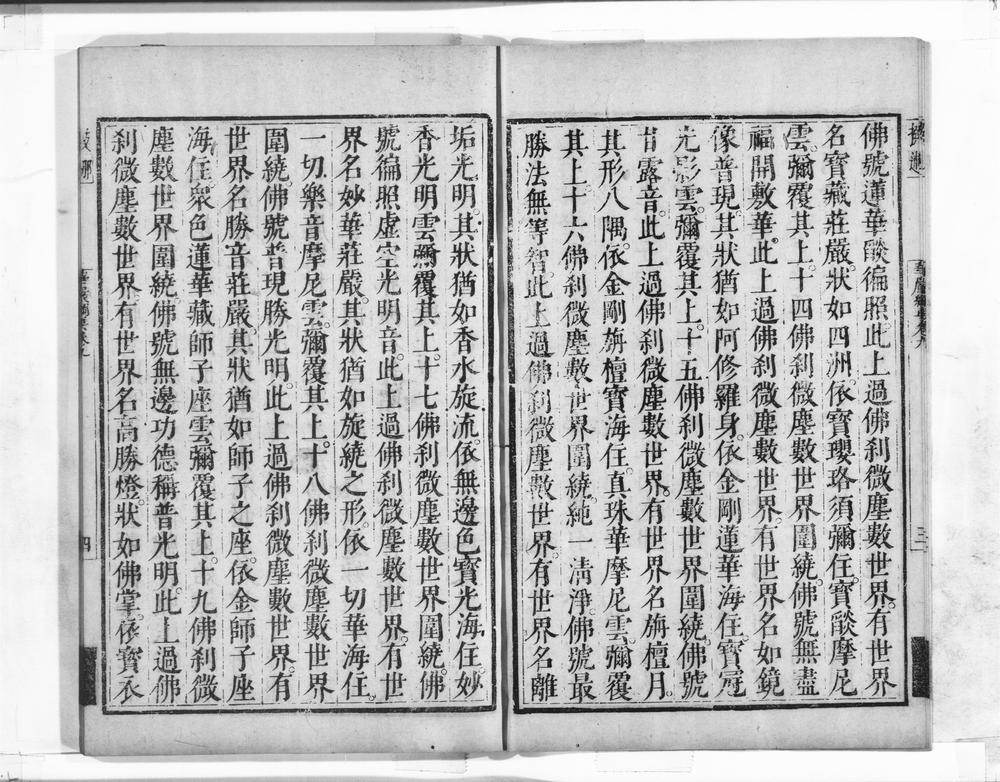 佛號蓮華𦦨徧照。此上過佛刹微塵數世界。有世界
名寶藏莊嚴。狀如四洲。依寶瓔珞須彌住。寶𦦨摩尼
雲。彌覆其上。十四佛刹微塵數世界圍繞。佛號無盡
福開敷華。此上過佛刹微塵數世界。有世界名如鏡
像普現。其狀猶如阿修羅身。依金剛蓮華海住。寶冠
光影雲。彌覆其上。十五佛刹微塵數世界圍繞。佛號
甘露音。此上過佛刹微塵數世界。有世界名旃檀月。
其形八隅。依金剛旃檀寶海住。真珠華摩尼雲。彌覆
其上。十六佛刹微塵數世界圍繞。純一清淨。佛號最
勝法無等智。此上過佛刹微塵數世界。有世界名離
垢光明。其狀猶如香水旋流。依無邊色寶光海住。妙
香光明雲彌覆其上。十七佛刹微塵數世界圍繞。佛
號徧照虛空光明音。此上過佛刹微塵數世界。有世
界名妙華莊嚴。其狀猶如旋繞之形。依一切華海住。
一切樂音摩尼雲。彌覆其上。十八佛刹微塵數世界
圍繞。佛號普現勝光明。此上過佛刹微塵數世界。有
世界名勝音莊嚴。其狀猶如師子之座。依金師子座
海住。衆色蓮華藏師子座雲彌覆其上。十九佛刹微
塵數世界圍繞。佛號無邊功德稱普光明。此上過佛
刹微塵數世界。有世界名高勝燈。狀如佛掌。依寶衣
四